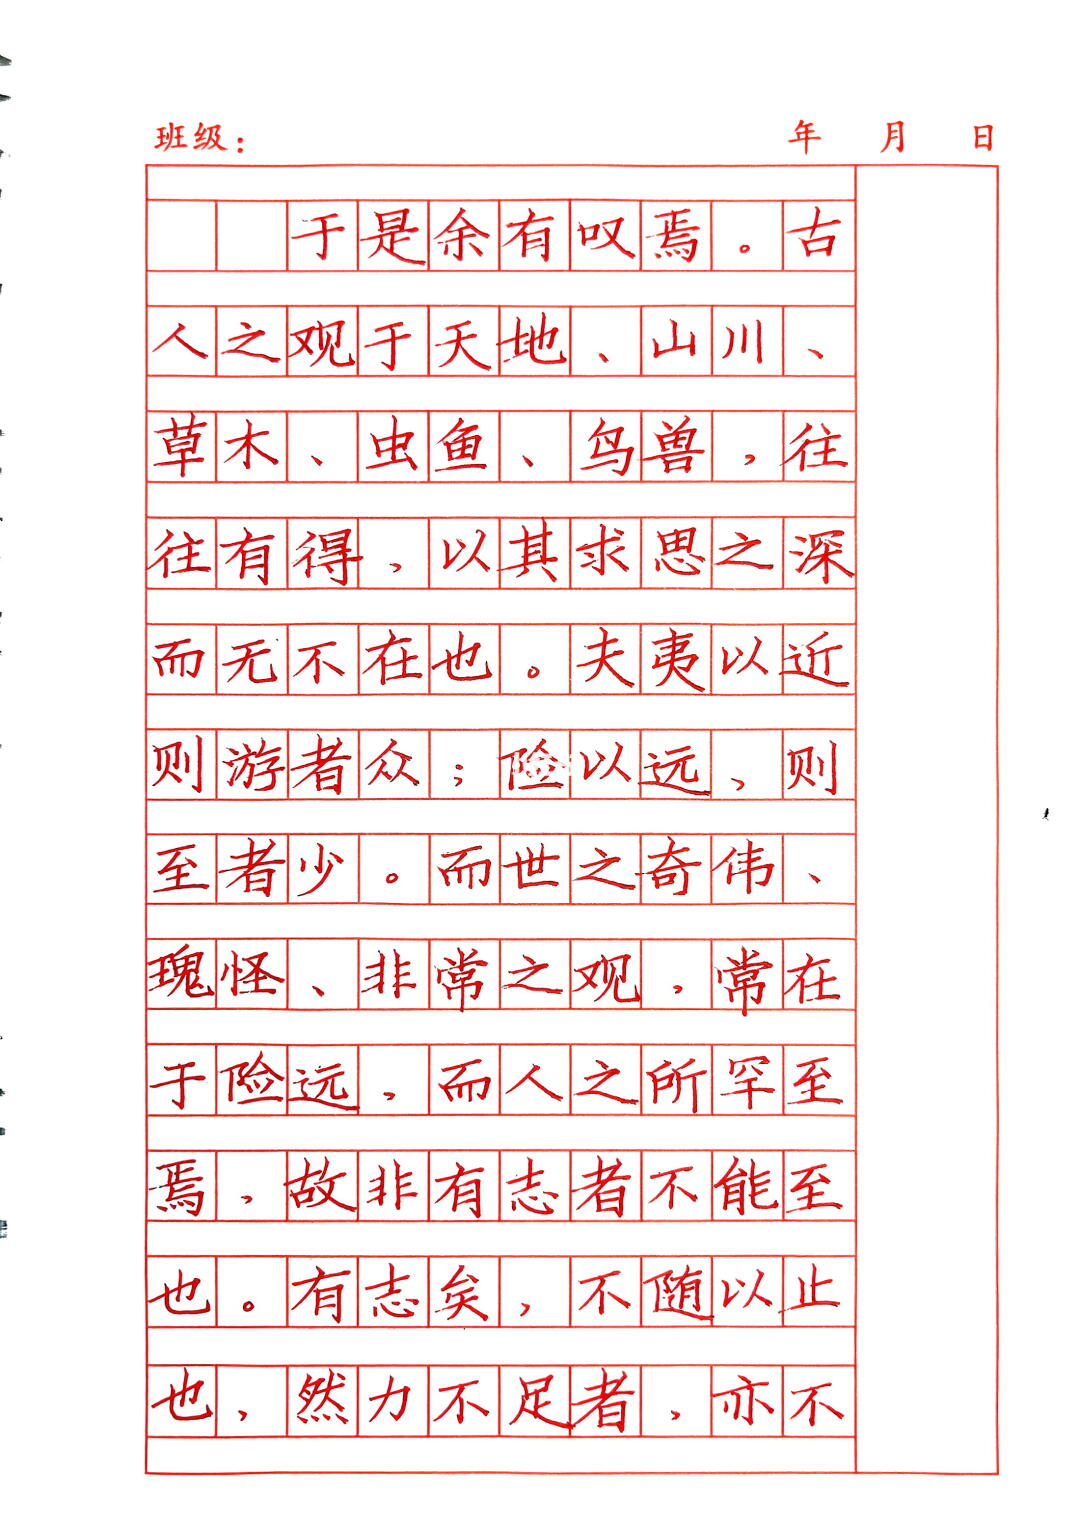 班级： 年 月 日
于是余有叹焉。古
人之观于天地、山川、
草木、虫鱼、鸟兽，往
往有得，以其求思之深
而无不在也。夫夷以近
则游者众；险以远，则
至者少。而世之奇伟、
瑰怪、非常之观，常在
于险远，而人之所罕至
焉，故非有志者不能至
也。有志矣，不随以止
也，然力不足者，亦不